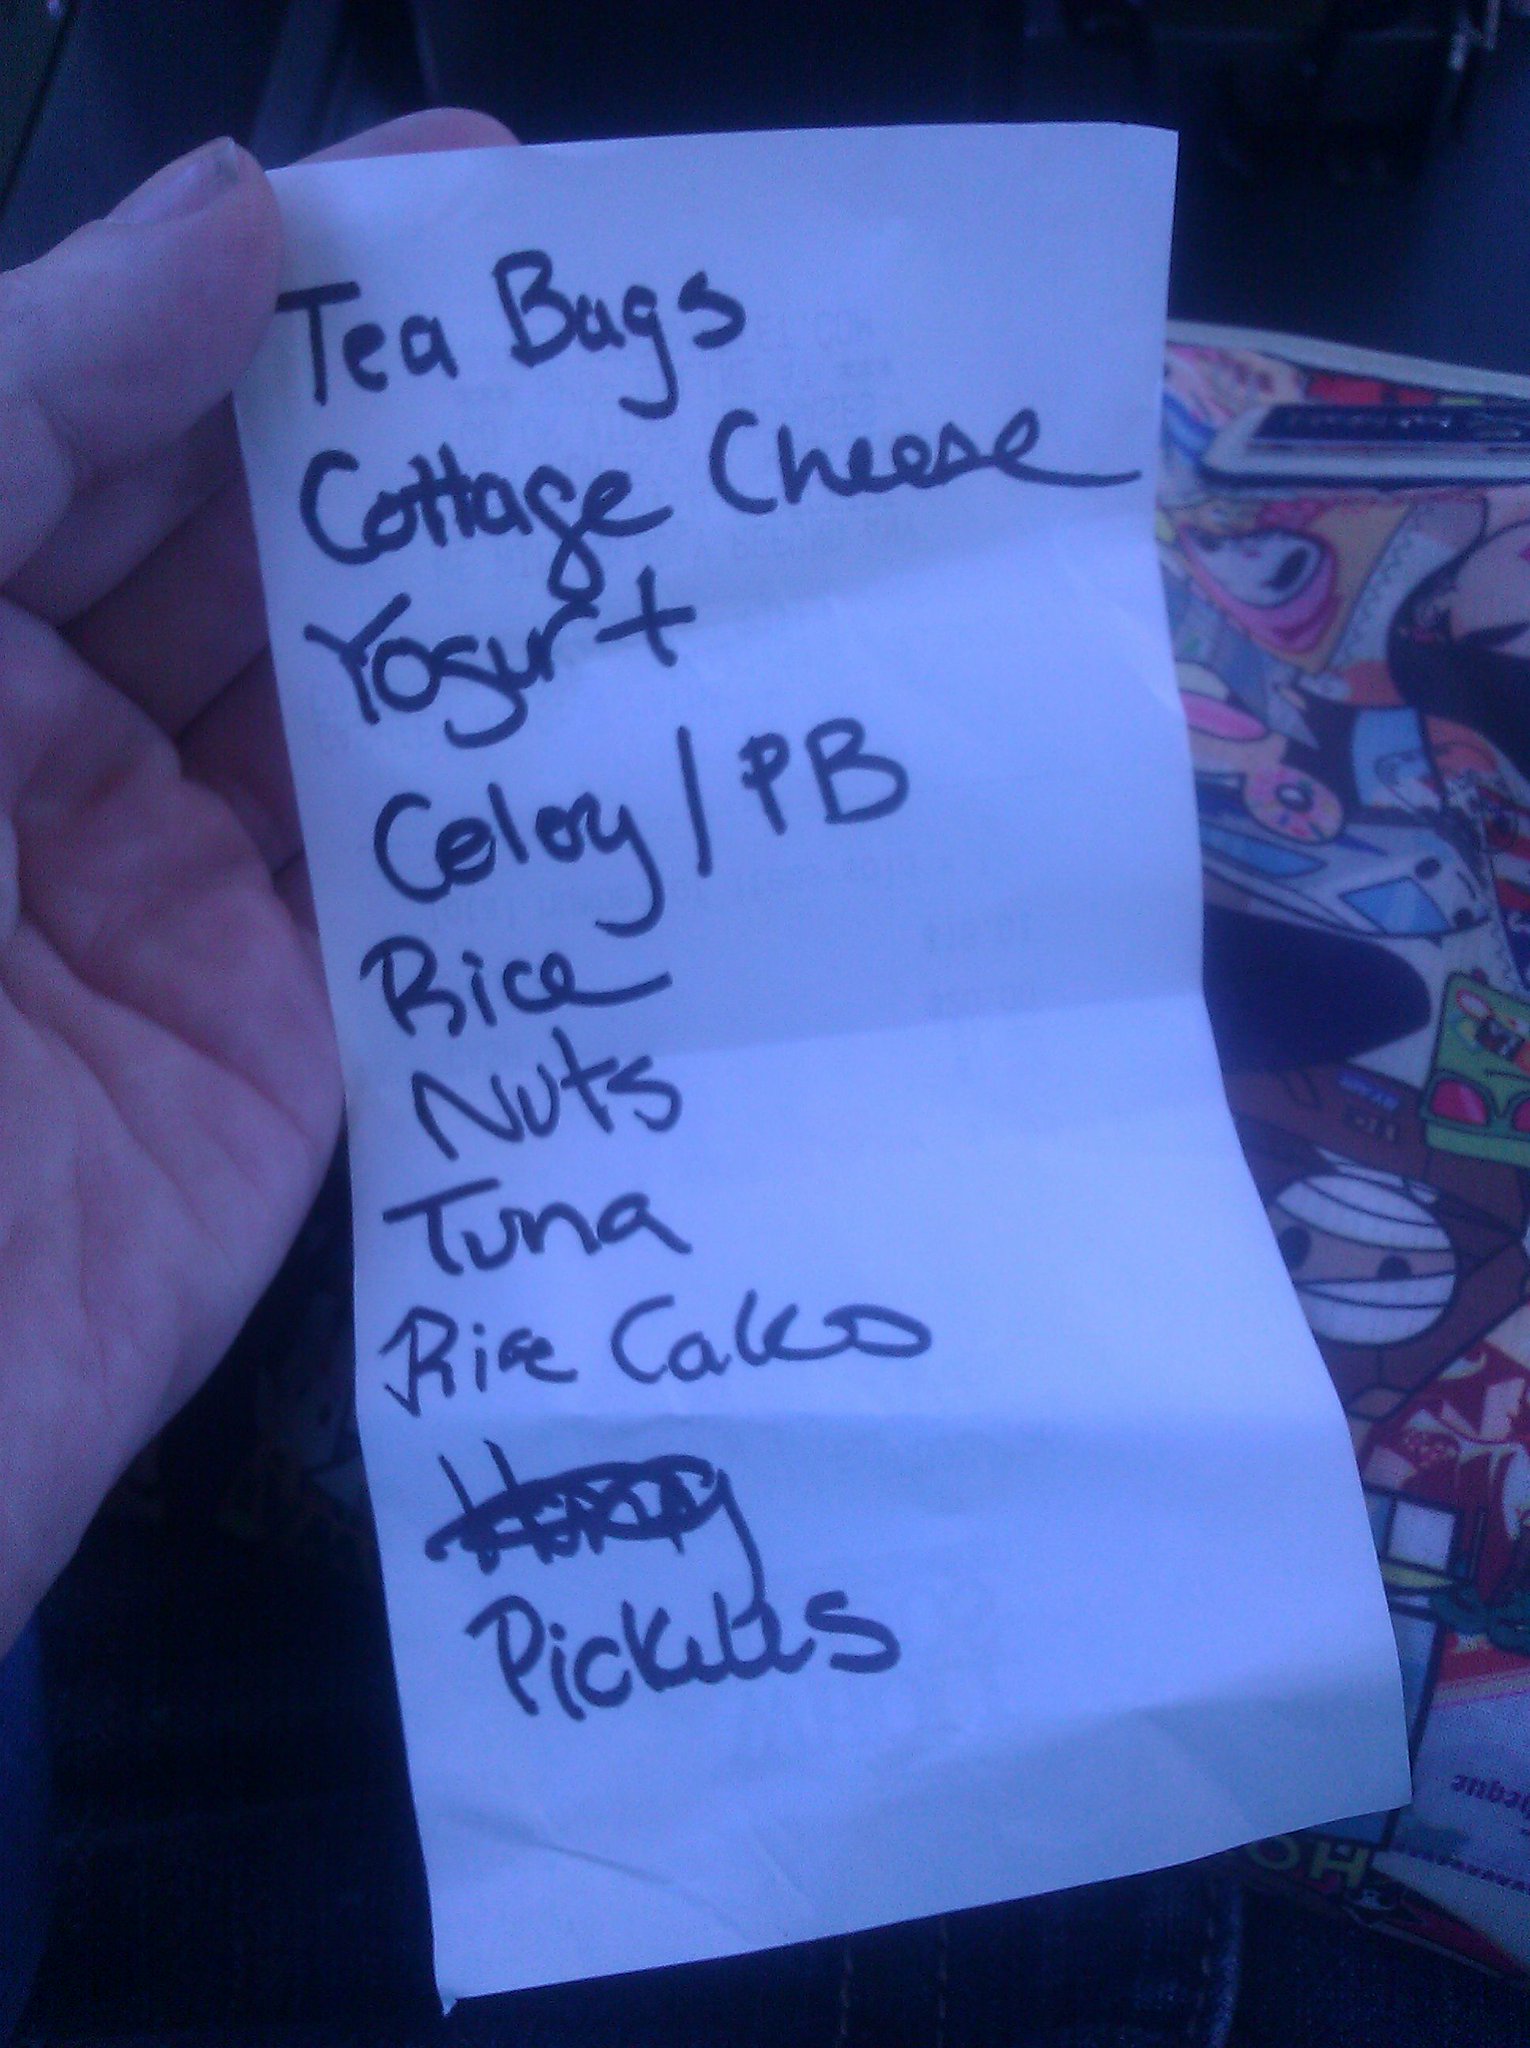 Tea Bags
Cottage Cheese
Yogurt
Celery / PB
Rice
Nuts
Tuna
Rice Cakes
Honey
Pickles